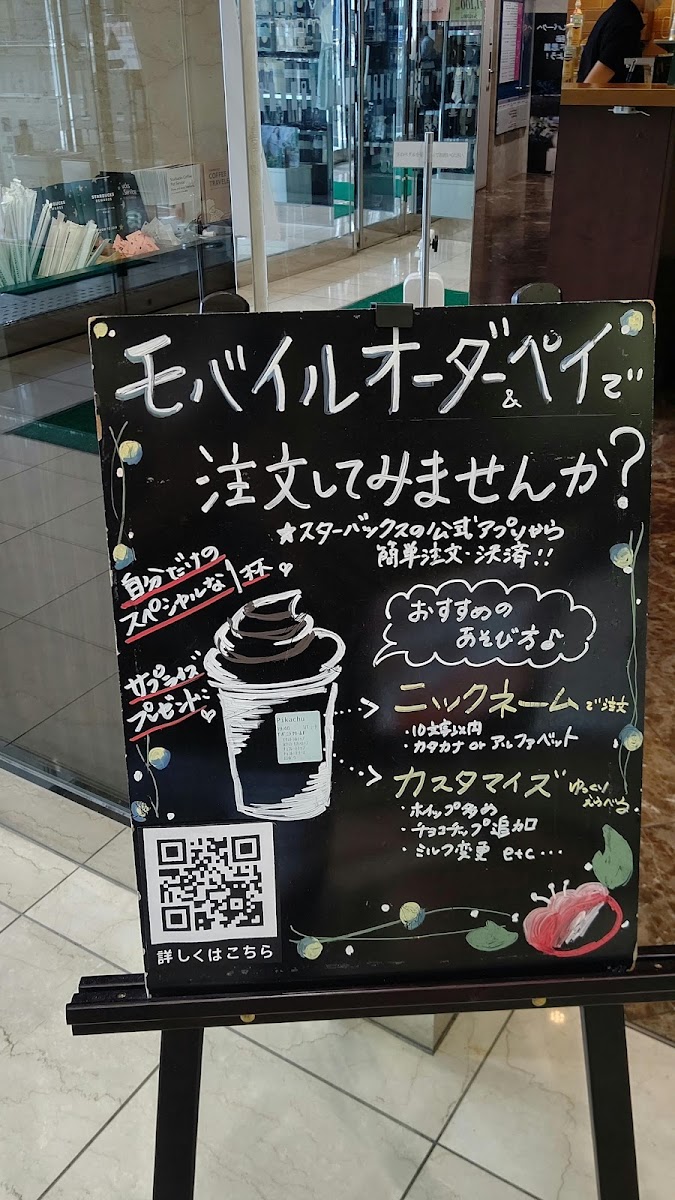 モバイルオーダー&ペイで
注文してみませんか?
★スターバックスの公式アプリから
簡単注文・決済!!
自分だけの
スペシャルな1杯♡
サプライズ
プレゼントに♡
おすすめの
あそび方♪
ニックネームで注文
・10文字以内
・カタカナ or アルファベット
カスタマイズ ゆっくり
えらべる
・ホイップ多め
・チョコチップ追加
・ミルク変更 etc…
Pikachu
詳しくはこちら
COFFEE
TRAVELER